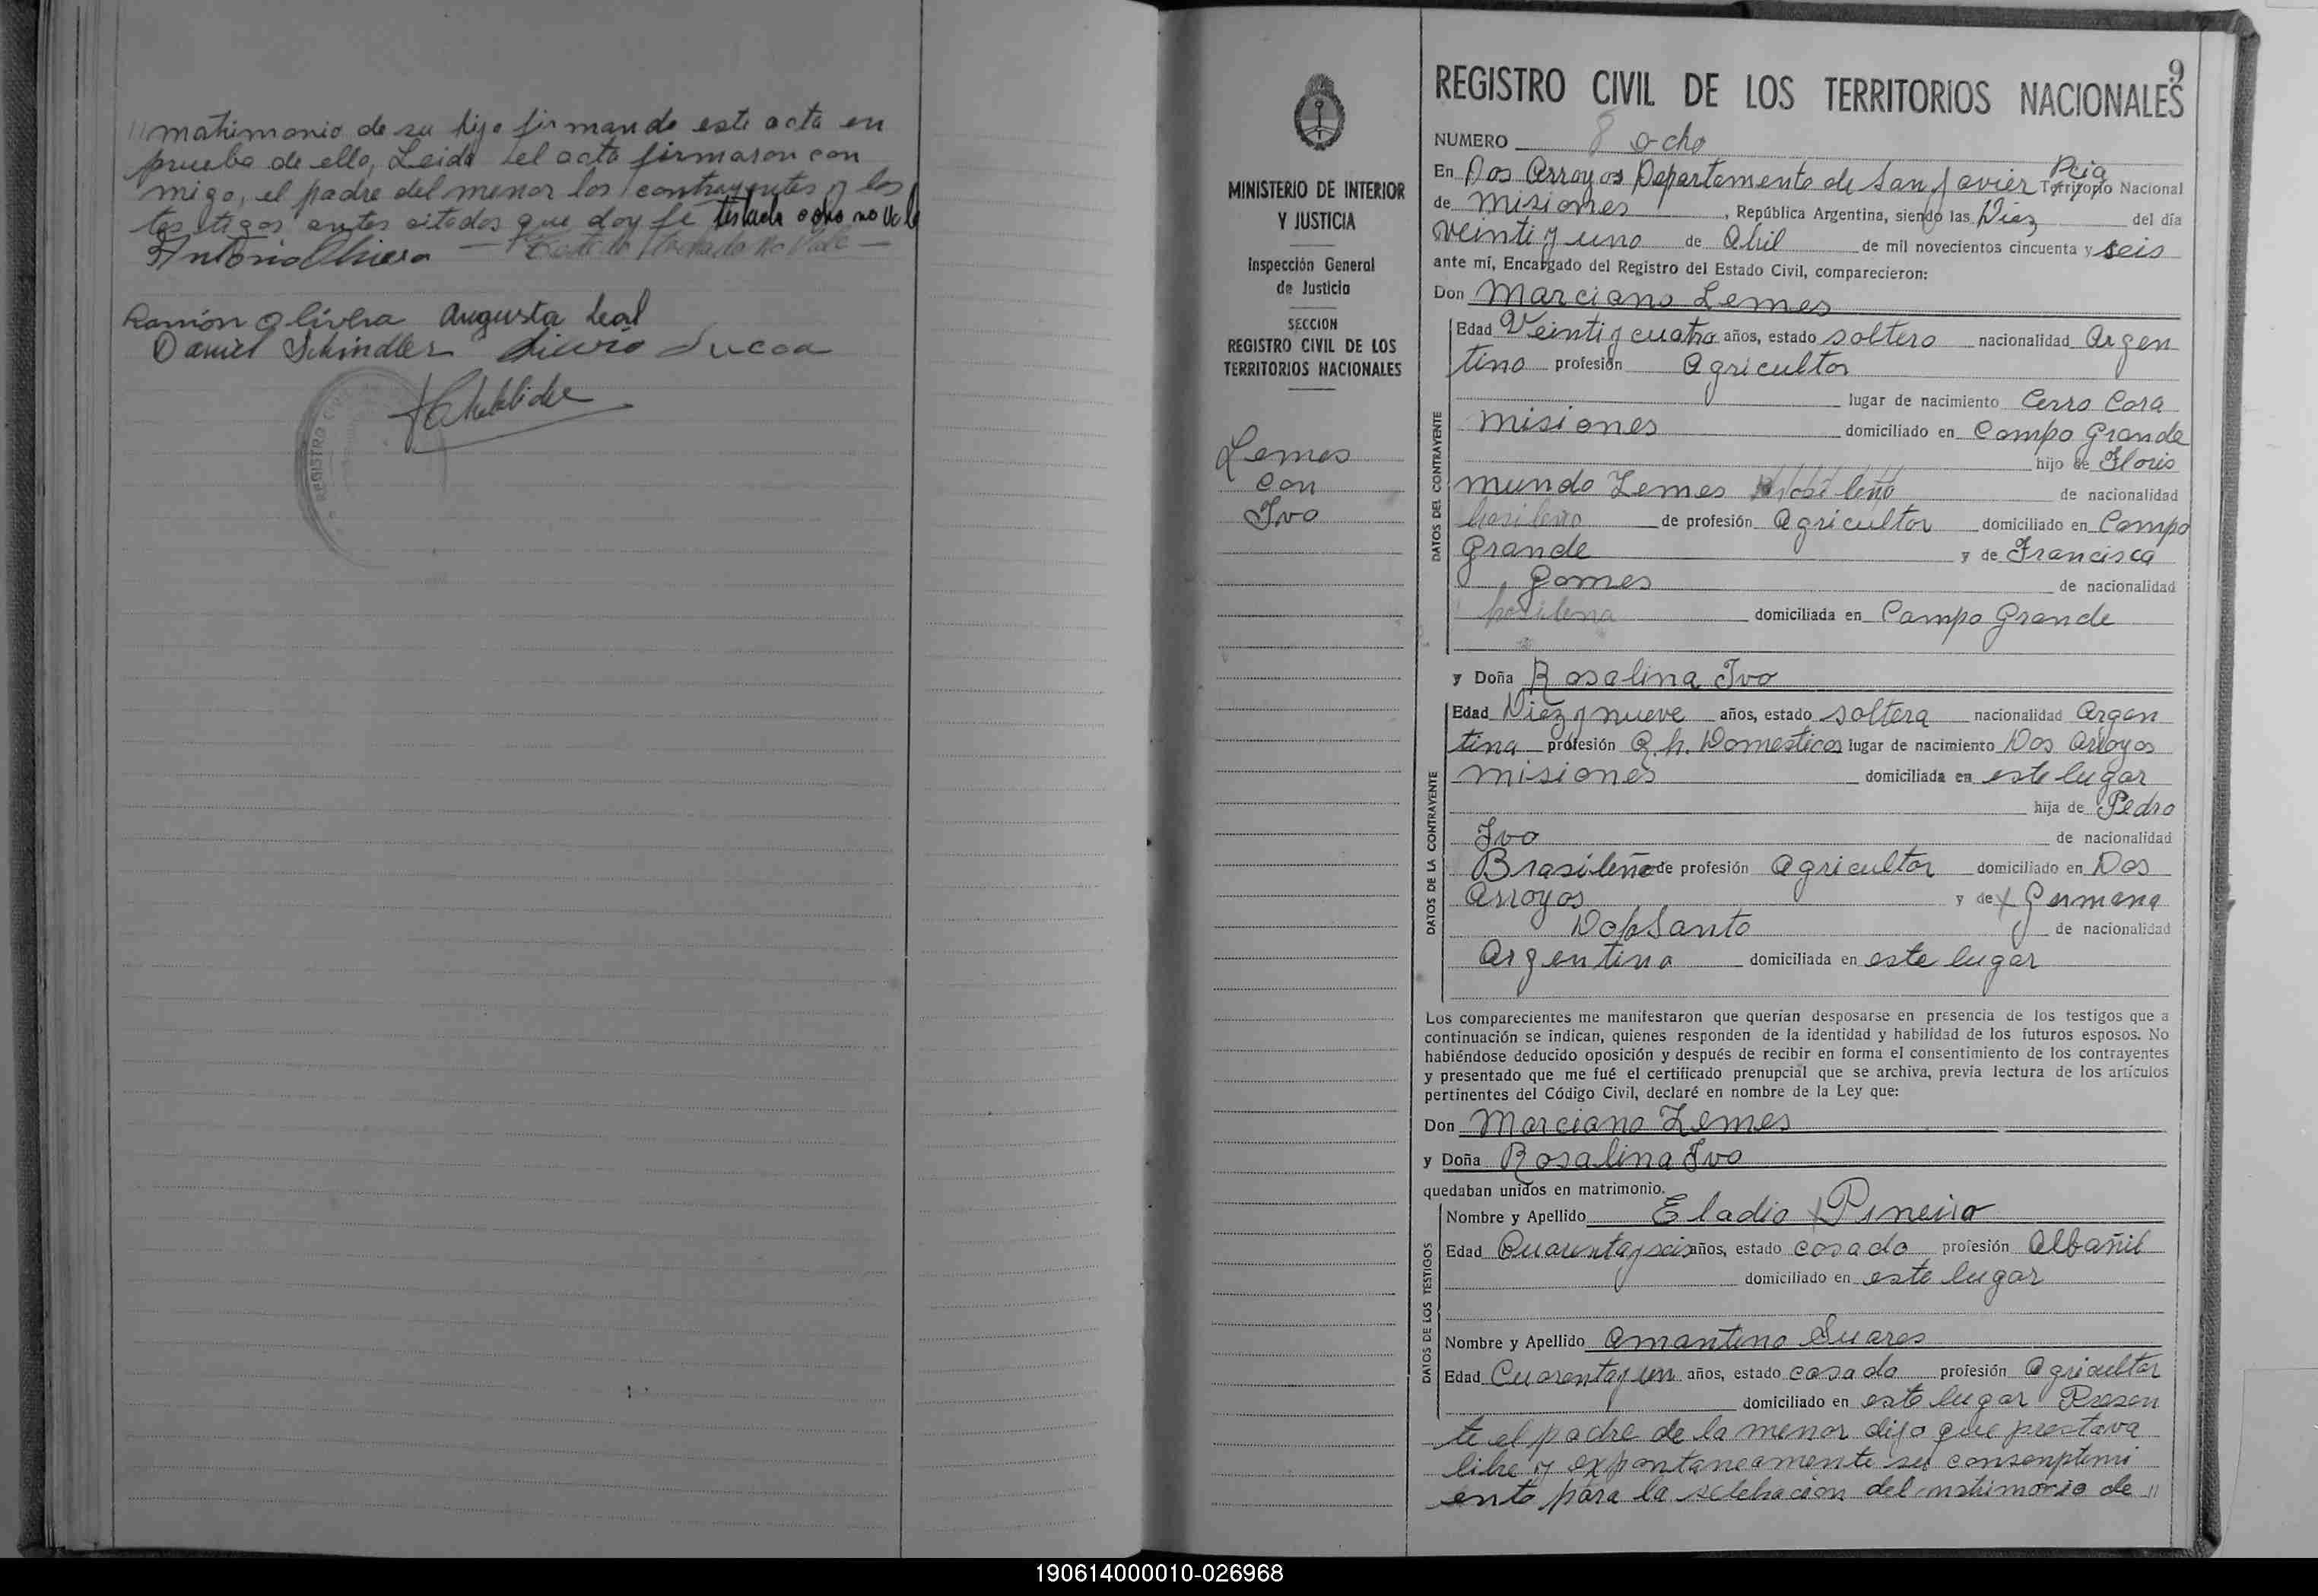 // matrimonio de su hijo firmando este acta en
prueba de ello, Leida el acta firmaron con
migo, el padre del menor los contrayentes y los
testigos antes citados que doy fe testado ocho no vale
Antonio Olivera — Testado no Vale —
Ramón Olivera Augusta Leal
Daniel Schindler Sucoa
REGISTRO
9
MINISTERIO DE INTERIOR
Y JUSTICIA
Inspección General
de Justicia
SECCION
REGISTRO CIVIL DE LOS
TERRITORIOS NACIONALES
Lemes
Con
Ivo
REGISTRO CIVIL DE LOS TERRITORIOS NACIONALES
NUMERO 8 ocho
Pcia
En Dos Arroyos Departamento de San Javier Territorio Nacional
de Misiones, República Argentina, siendo las Diez del día
veinti y uno de Abril de mil novecientos cincuenta y seis
ante mí, Encargado del Registro del Estado Civil, comparecieron:
Don Marciano Lemes
DATOS DEL CONTRAYENTE
Edad Veinti y cuatro años, estado soltero nacionalidad Argen
tino profesión Agricultor
lugar de nacimiento Cerro Cora
Misiones domiciliado en Campo Grande
hijo de Floris
mundo Lemes Brasileño de nacionalidad
brasilero de profesión Agricultor domiciliado en Campo
Grande y de Francisca
Gomes de nacionalidad
brasilera domiciliada en Campo Grande
y Doña Rosalina Ivo
DATOS DE LA CONTRAYENTE
Edad Diez y nueve años, estado soltera nacionalidad Argen
tina profesión Q.h. Domesticos lugar de nacimiento Dos Arroyos
Misiones domiciliada en este lugar
hija de Pedro
Ivo de nacionalidad
Brasileño de profesión Agricultor domiciliado en Dos
Arroyos y de Germana
Dos Santo de nacionalidad
Argentina domiciliada en este lugar
Los comparecientes me manifestaron que querían desposarse en presencia de los testigos que a
continuación se indican, quienes responden de la identidad y habilidad de los futuros esposos. No
habiéndose deducido oposición y después de recibir en forma el consentimiento de los contrayentes
y presentado que me fué el certificado prenupcial que se archiva, previa lectura de los artículos
pertinentes del Código Civil, declaré en nombre de la Ley que:
Don Marciano Lemes
y Doña Rosalina Ivo
quedaban unidos en matrimonio.
DATOS DE LOS TESTIGOS
Nombre y Apellido Eladio Pineiro
Edad Cuarenta y seis años, estado casado profesión Albañil
domiciliado en este lugar
Nombre y Apellido Amantino Suares
Edad Cuarenta y un años, estado casado profesión Agricultor
domiciliado en este lugar Presen
te el padre de la menor dijo que prestava
libre y expontaneamente su consenptimi
ento para la selebracion del matrimonio de //
190614000010-026968